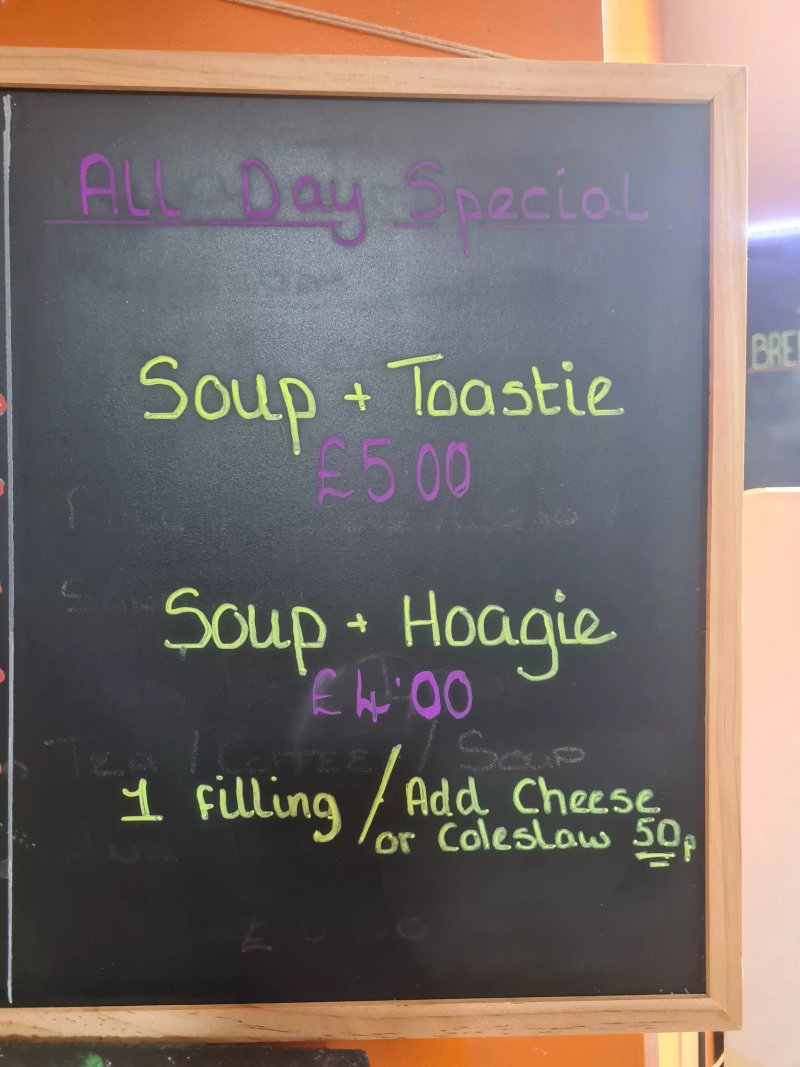 All Day Special
Soup + Toastie
£5.00
Soup + Hoagie
£4.00
Tea / Coffee / Soup
1 Filling / Add Cheese
or Coleslaw 50p